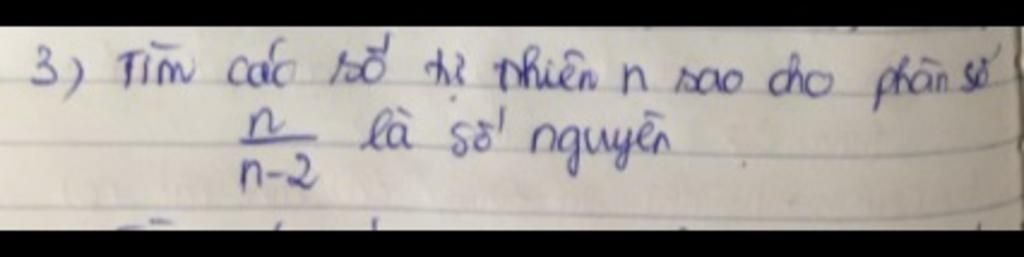 3) Tìm các số tự nhiên n sao cho phân số
n/n-2 là số nguyên